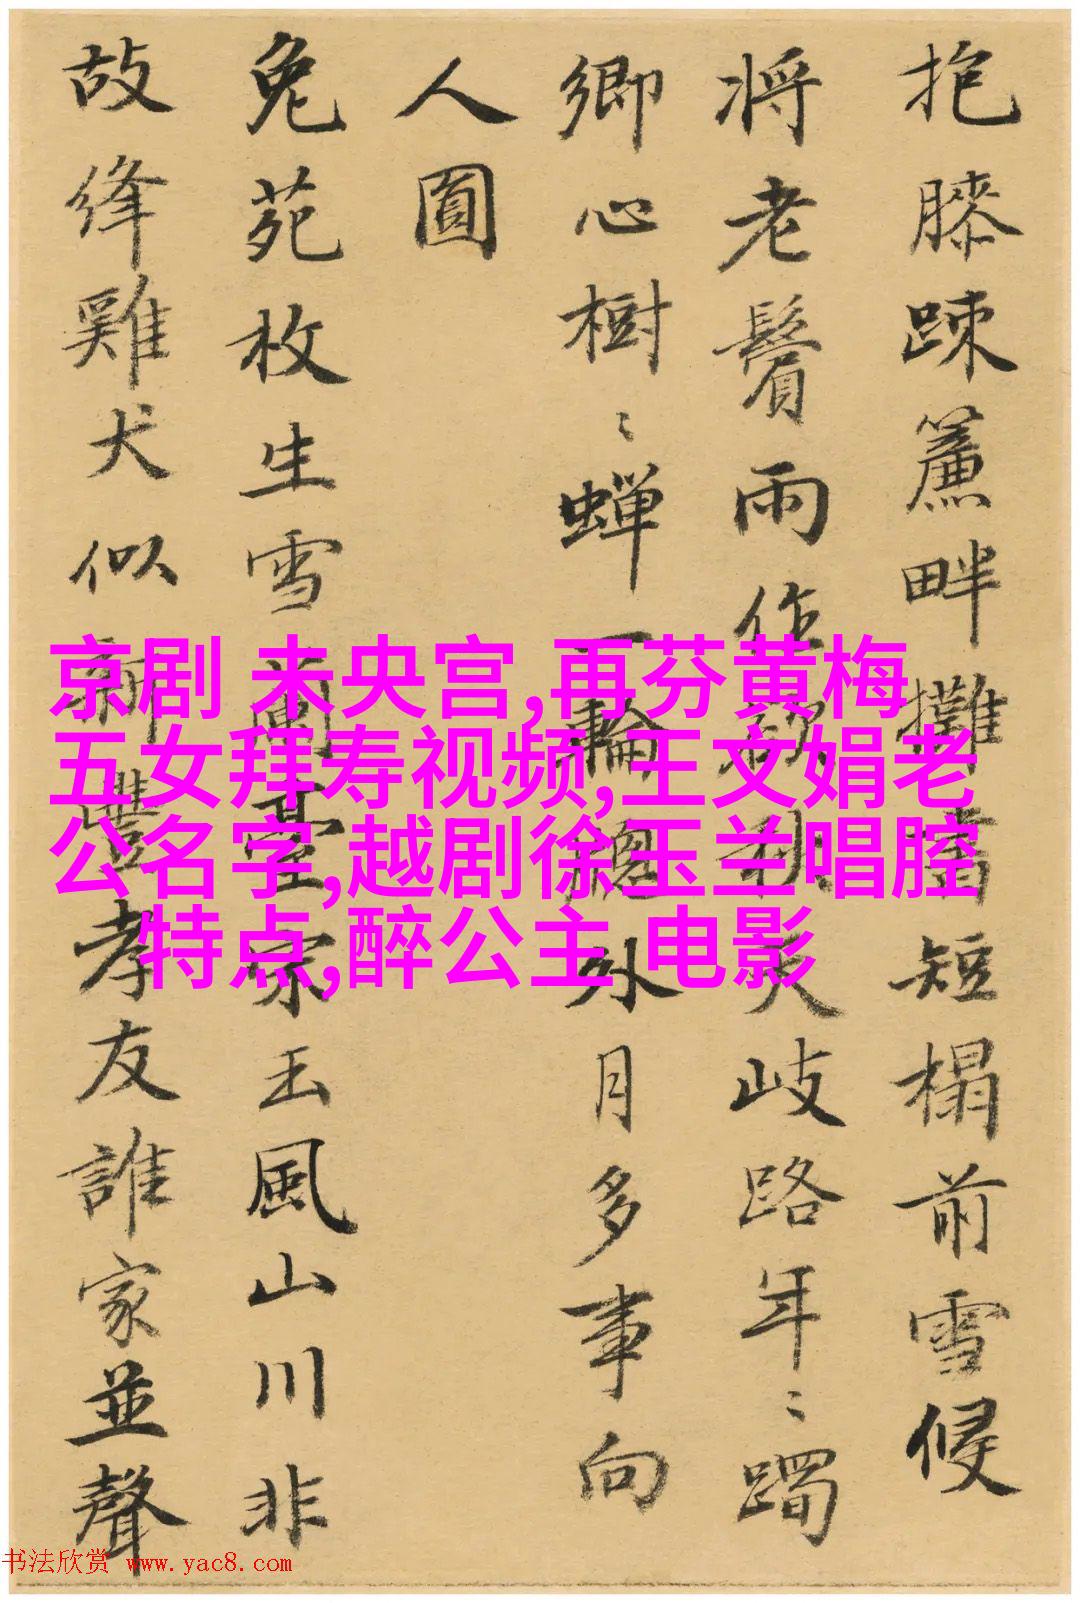 抱膝踈簾畔攤書短榻前雪侵
将老鬢雨作欲秋天歧路年〻躅
鄉心樹〻蟬一輪外月多事向
人圓
兔苑枚生雪蘭臺宋玉風山川非
故絳雞犬似新豐孝友誰家並聲
京剧 未央宫,再芬黄梅
五女拜寿视频,王文娟老
公名字,越剧徐玉兰唱腔
特点,醉公主 电影
书法欣赏 www.yac8.com